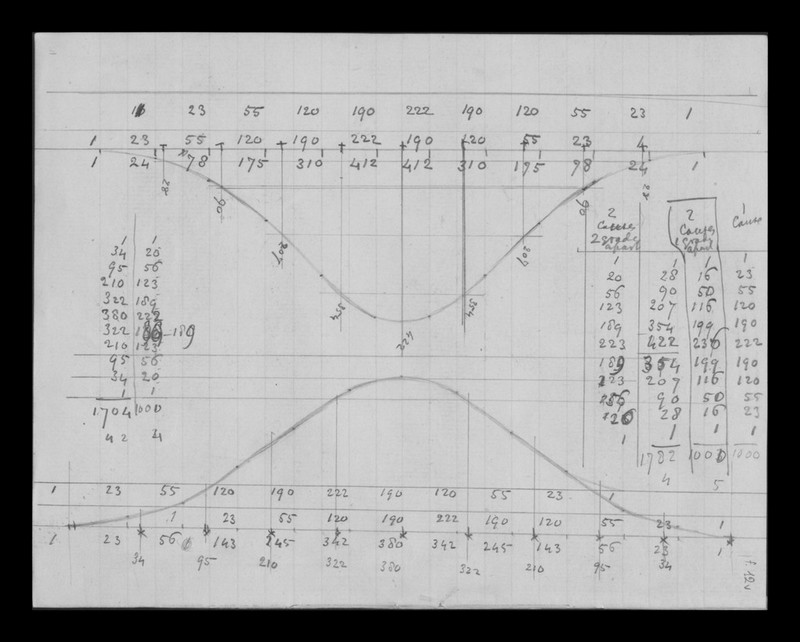 23 55 120 190 222 190 120 55 23 1
1 23 55 120 190 222 190 120 55 23
1 24 78 175 310 412 412 310 175 98 24 1
28 90 207 90 28
424
1 1
34 20
95 56
210 123
322 189
380 222
322 189
210 123
95 56
34 20
1 1
1704 1000
42 4
2 2 1
Causes Causes Cause
2 grades 1 grade
apart apart
1 1 1 1
20 28 16 23
56 90 50 55
123 207 116 120
189 354 199 190
223 422 236 222
189 354 199 190
123 207 116 120
56 90 50 55
20 28 16 23
1 1 1 1
1782 1000 1000
4 5
1 23 55 120 190 222 190 120 55 23 1
1 23 55 120 190 222 190 120 55 23 1
1 23 56 143 245 342 380 342 245 143 56 23 1
34 95 210 322 380 322 210 95 34